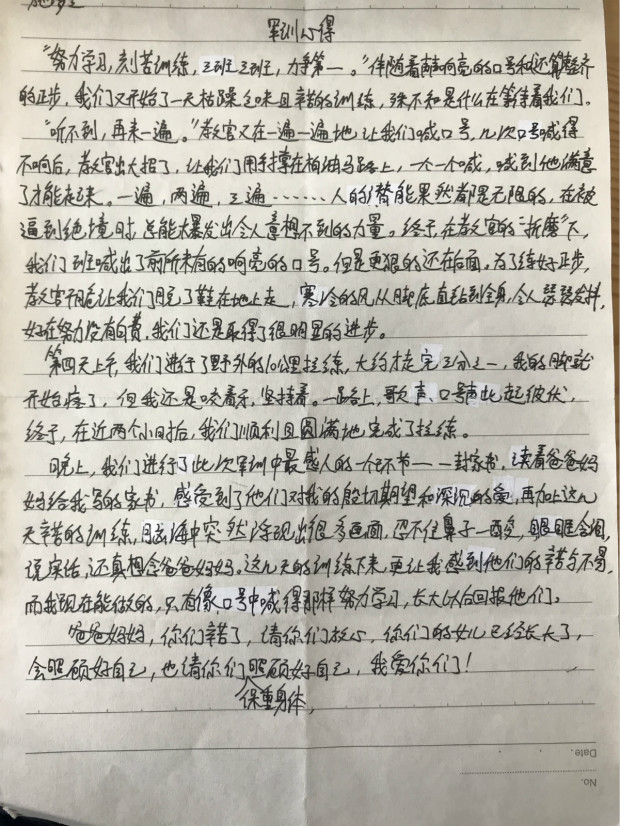 军训心得
“努力学习，刻苦训练，三班三班，力争第一。”伴随着声响亮的口号和还算整齐
的正步，我们又开始了一天枯燥乏味且辛苦的训练，殊不知是什么在等待着我们。
“听不到，再来一遍。”教官又在一遍一遍地让我们喊口号，几次口号喊得
不响后，教官出大招了，让我们用手撑在柏油马路上，一个一个喊，喊到他满意
了才能起来。一遍，两遍，三遍……人的潜能果然都是无限的，在被
逼到绝境时，总能爆发出令人意想不到的力量。终于，在教官的“折磨”下，
我们班喊出了前所未有的响亮的口号。但是更狠的还在后面。为了练好正步，
教官干脆让我们脱了鞋在地上走，寒冷的风从脚底直钻到全身，令人瑟瑟发抖，
好在努力没有白费，我们还是取得了很明显的进步。
第四天上午，我们进行了野外的10公里拉练，大约才走完三分之一，我的脚就
开始疼了，但我还是咬着牙，坚持着。一路上，歌声、口号声此起彼伏，
终于，在近两个小时后，我们顺利且圆满地完成了拉练。
晚上，我们进行了此次军训中最感人的一个环节——一封家书，读着爸爸妈
妈给我写的家书，感受到了他们对我的殷切期望和深沉的爱，再加上这几
天辛苦的训练，脑海中突然浮现出很多画面，忍不住鼻子一酸，眼眶含泪，
说实话，还真想念爸爸妈妈。这几天的训练下来，更让我感到他们的辛苦与不易，
而我现在能做的，只有像口号中喊得那样努力学习，长大以后回报他们。
爸爸妈妈，你们辛苦了，请你们放心，你们的女儿已经长大了，
会照顾好自己，也请你们照顾好自己，我爱你们！
保重身体，
Date.
No.